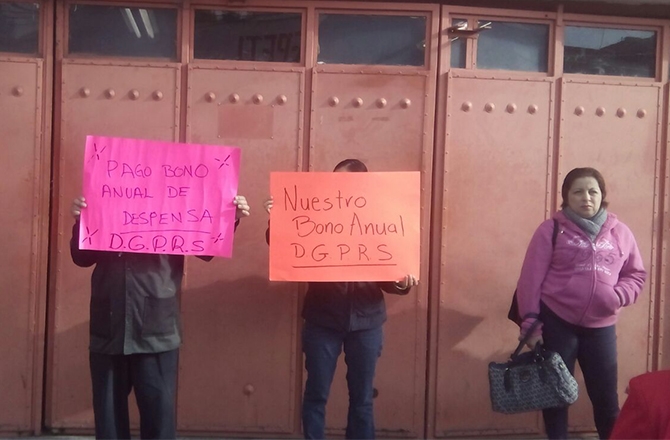 PAGO BONO
ANUAL DE
DESPENSA
D.G.P.R.S
Nuestro
Bono Anual
DGPRS